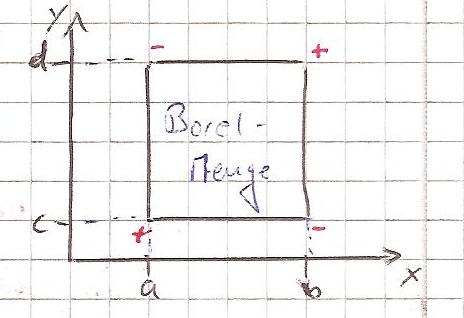 y
d - +
Borel-
Menge
c + -
a b x